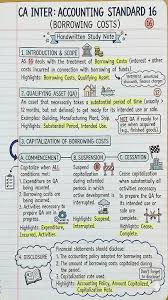 CA INTER: ACCOUNTING STANDARD 16
(BORROWING COSTS)
16
Handwritten Study Note
1. INTRODUCTION & SCOPE
AS 16 deals with the treatment of Borrowing Costs (interest + other
costs incurred in connection with borrowing of funds).
Highlights: Borrowing Costs, Qualifying Asset.
2. QUALIFYING ASSET (QA)
An asset that necessarily takes a substantial period of time (usually
12 months, but not defined) to get ready for its intended use or sale.
Examples: Building, Manufacturing Plant, Ship.
Highlights: Substantial Period, Intended Use.
3. CAPITALIZATION OF BORROWING COSTS
A. COMMENCEMENT
Capitalize when ALL
conditions met:
1. Expenditure on QA
being incurred.
2. Borrowing costs
being incurred.
3. Activities necessary
to prepare the QA are in
progress.
Highlights: Expenditure,
Incurred, Activities.
B. SUSPENSION
capitalization
during
Highlights: Suspend,
Interrupted.
C. CESSATION
Cease capitalization
when substantially
all activities necessary
to prepare the QA
for its intended use
or sale are
complete.
Highlights: Cease,
Complete.
4. DISCLOSURE
Financial statements should disclose:
1. The accounting policy adopted for borrowing costs.
2. The amount of borrowing costs capitalized during
the period.
3. Capitalization rate used.
Highlights: Policy, Amount Capitalized,
Capitalization Rate.